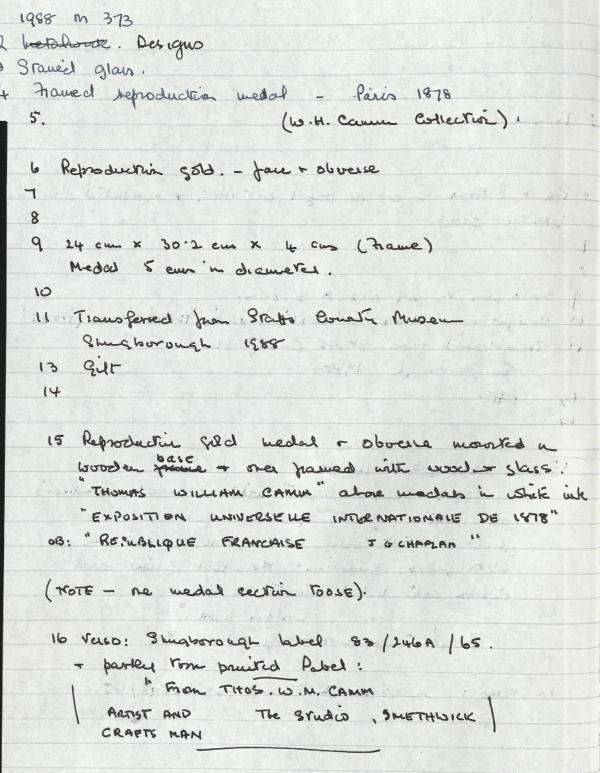 1988 m 373
2 metalwork. Designs
Stained glass.
4 Framed reproduction medal - Paris 1878
5. (W.H. Camm Collection).
6 Reproduction gold. - face + obverse
7
8
9 24 cm x 30.2 cm x 4 cms (Frame)
Medal 5 cms in diameter.
10
11 Transferred from Staffs County Museum
Shugborough 1988
13 Gift
14
15 Reproduction gold medal + obverse mounted in
wooden frame base + over framed with wood + glass.
"THOMAS WILLIAM CAMM" above medals in white ink
"EXPOSITION UNIVERSELLE INTERNATIONALE DE 1878"
OB: "REPUBLIQUE FRANCAISE J G CHAPLAN"
(NOTE - one medal section LOOSE).
16 Verso: Shugborough label 83/246A/65.
+ partly torn printed label:
"From THOS. W.M. CAMM
ARTIST AND The Studio, SMETHWICK
CRAFTS MAN